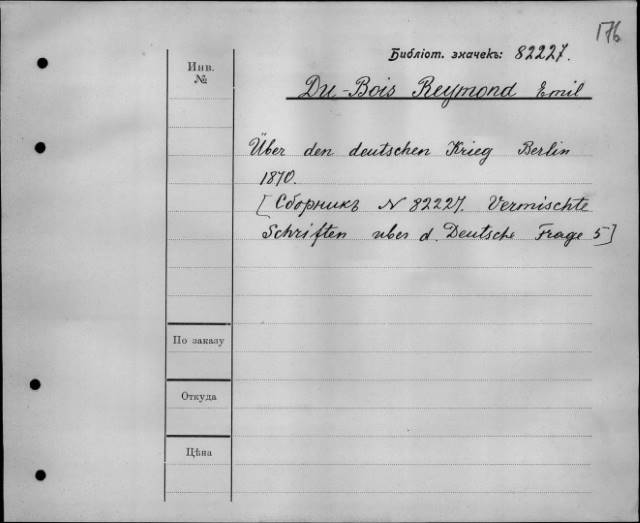 176
Библіот. значекъ: 82227.
Инв.
№
Du-Bois Reymond Emil
Über den deutschen Krieg Berlin
1870.
[Сборникъ N 82227. Vermischte
Schriften uber d. Deutsche Frage 5]
По заказу
Откуда
Цѣна